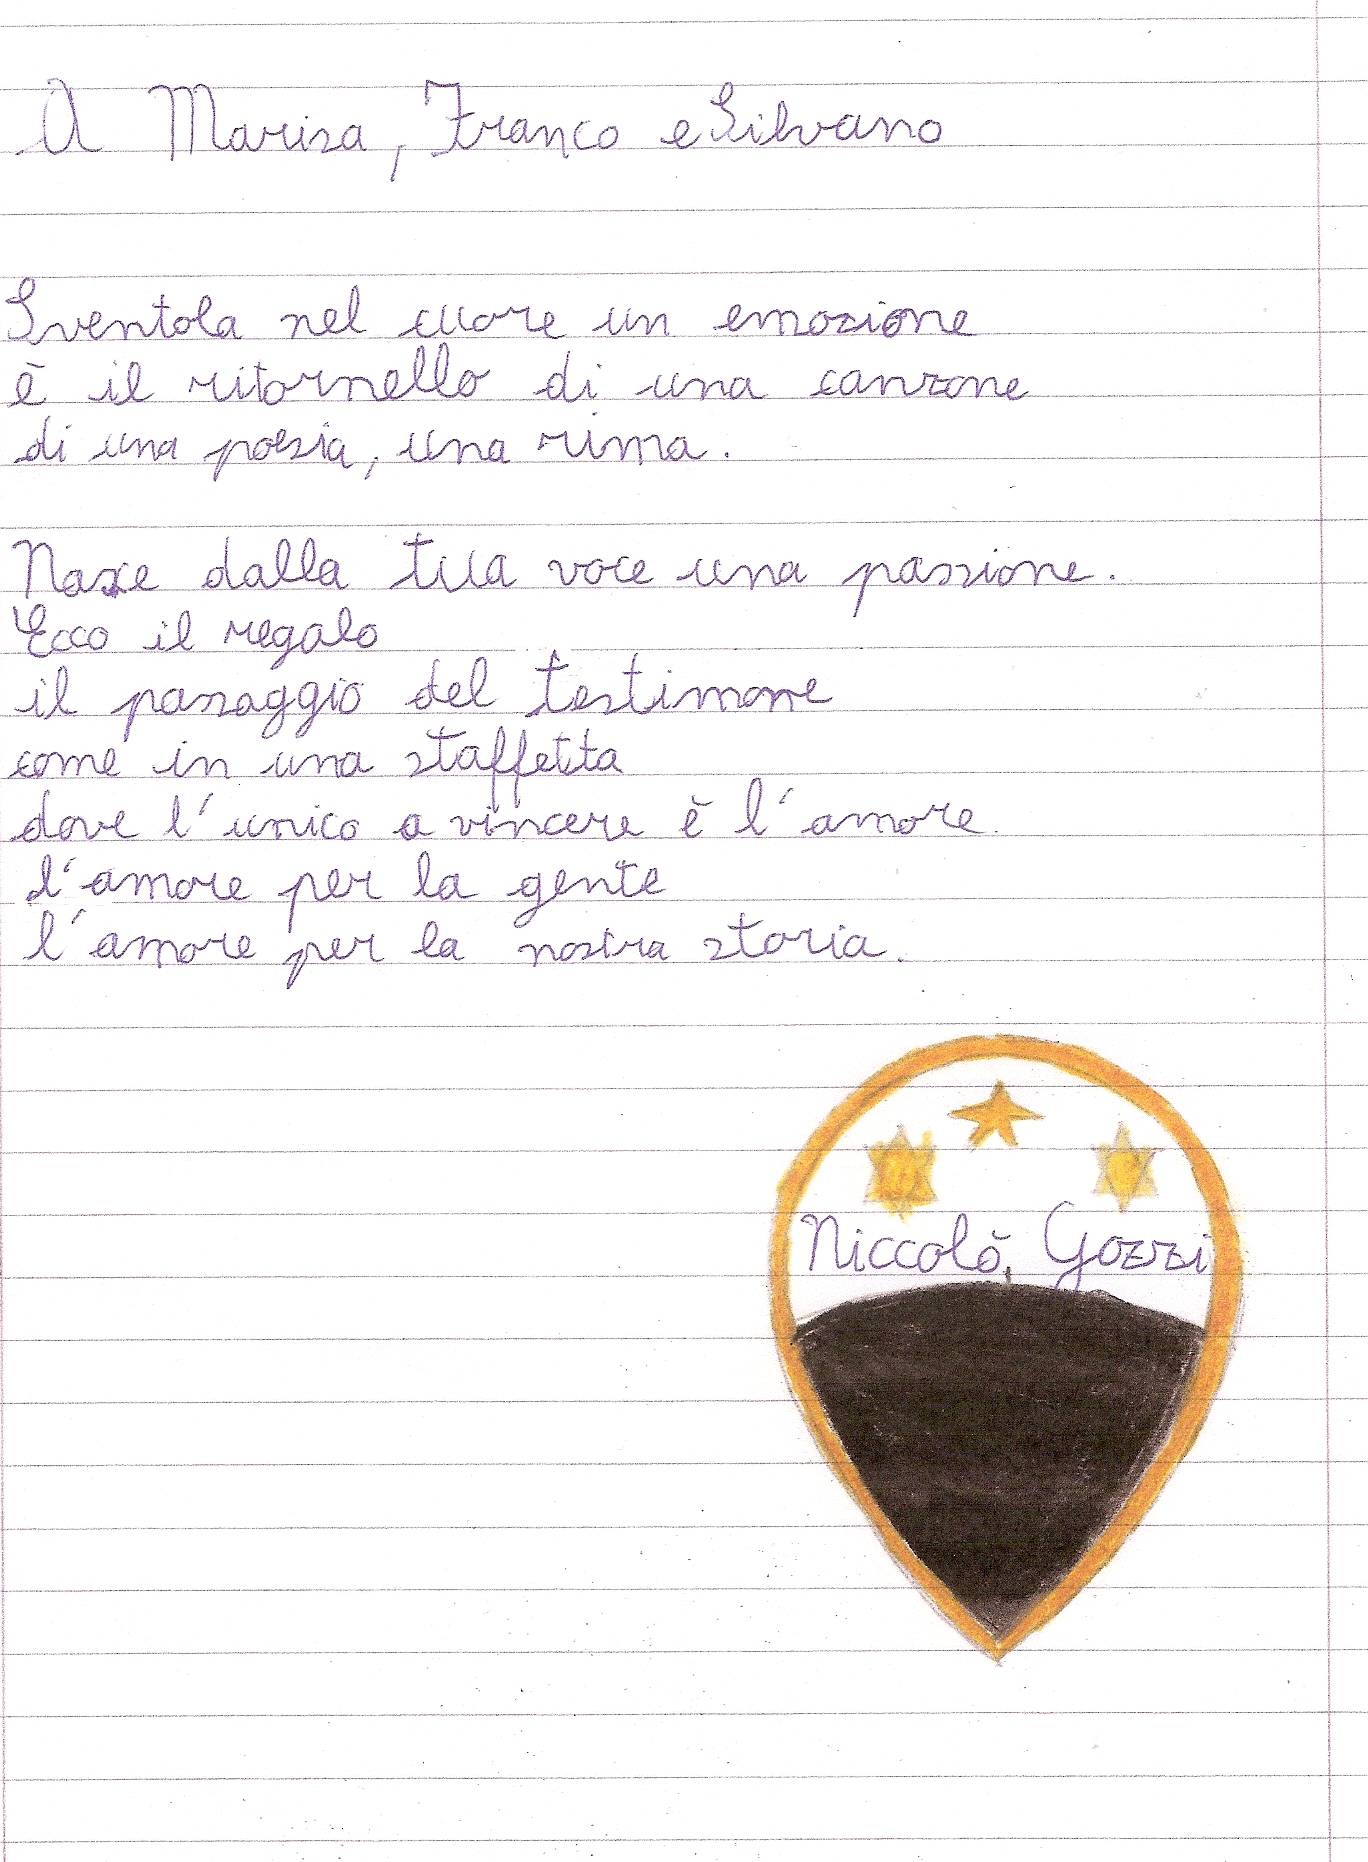 A Marisa, Franco e Silvano
Sventola nel cuore un emozione
è il ritornello di una canzone
di una poesia, una rima.
Nasce dalla tua voce una passione.
Ecco il regalo
il passaggio del testimone
come in una staffetta
dove l'unico a vincere è l'amore.
l'amore per la gente
l'amore per la nostra storia.
Niccolò Gozzi